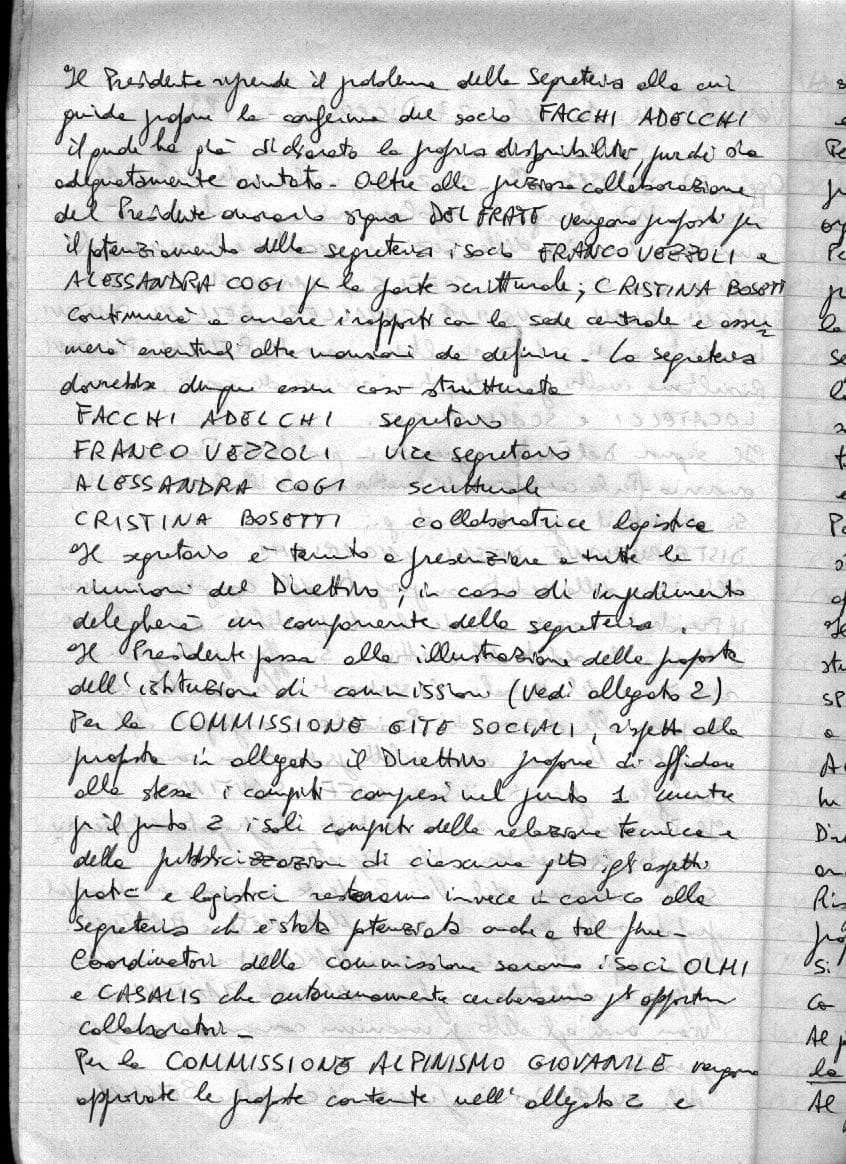 Il Presidente riprende il problema della Segreteria alla cui
guida propone la conferma del socio FACCHI ADELCHI
il quale ha già dichiarato la propria disponibilità, purché sia
adeguatamente aiutato. Oltre alla preziosa collaborazione
del Presidente onorario signor DEL FRATE vengono proposti per
il potenziamento della segreteria i soci FRANCO VEZZOLI e
ALESSANDRA COGI per la parte scritturale; CRISTINA BOSETTI
continuerà a curare i rapporti con la sede centrale e assu=
merà eventuali altre mansioni da definire. La segreteria
dovrebbe dunque essere così strutturata
FACCHI ADELCHI segretario
FRANCO VEZZOLI vice segretario
ALESSANDRA COGI scritturale
CRISTINA BOSETTI collaboratrice logistica
Il segretario è tenuto a presenziare a tutte le
riunioni del Direttivo; in caso di impedimento
delegherà un componente della segreteria.
Il Presidente passa alla illustrazione della proposta
dell'istituzione di commissioni (vedi allegato 2)
Per la COMMISSIONE GITE SOCIALI, rispetto alla
proposta in allegato il Direttivo propone di affidare
alla stessa i compiti compresi nel punto 1 mentre
per il punto 2 i soli compiti della relazione tecnica e
della pubblicizzazione di ciascuna gita gli aspetti
pratici e logistici resteranno invece in carico alla
segreteria che è stata potenziata anche a tal fine.
Coordinatori della commissione saranno i soci OLMI
e CASALIS che autonomamente cercheranno gli opportuni
collaboratori.
Per la COMMISSIONE ALPINISMO GIOVANILE vengono
approvate le proposte contenute nell'allegato 2 e